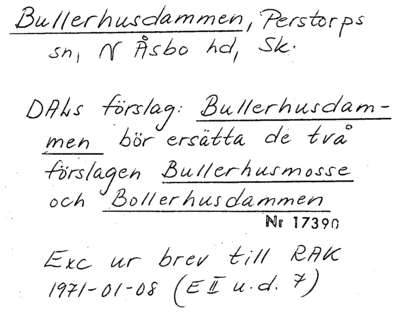 Bullerhusdammen, Perstorps
sn, N Åsbo hd, Sk.
DALs förslag: Bullerhusdam-
men bör ersätta de två
förslagen Bullerhusmosse
och Bollerhusdammen
Nr 17390
Exc ur brev till RAK
1971-01-08 (E II u.d. 7)